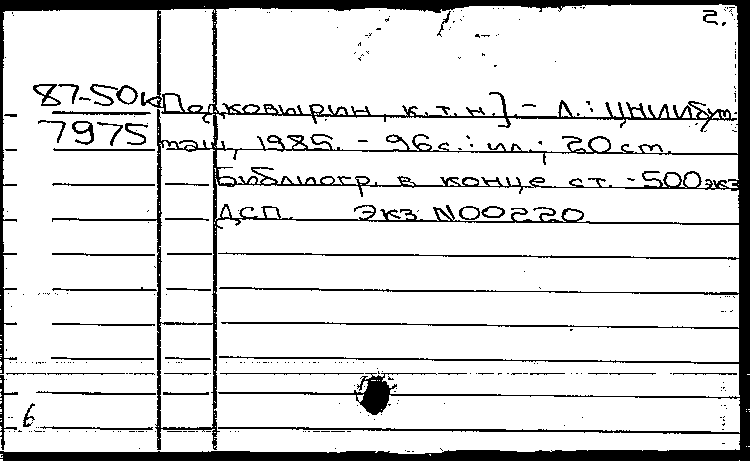 2.
87-50к Подковырин, к.т.н.]. - Л.: ЦНИИбум-
7975 маш, 1985. - 96с.: ил.; 20 см.
Библиогр. в конце ст. - 500 экз
ДСП Экз. N00220
6